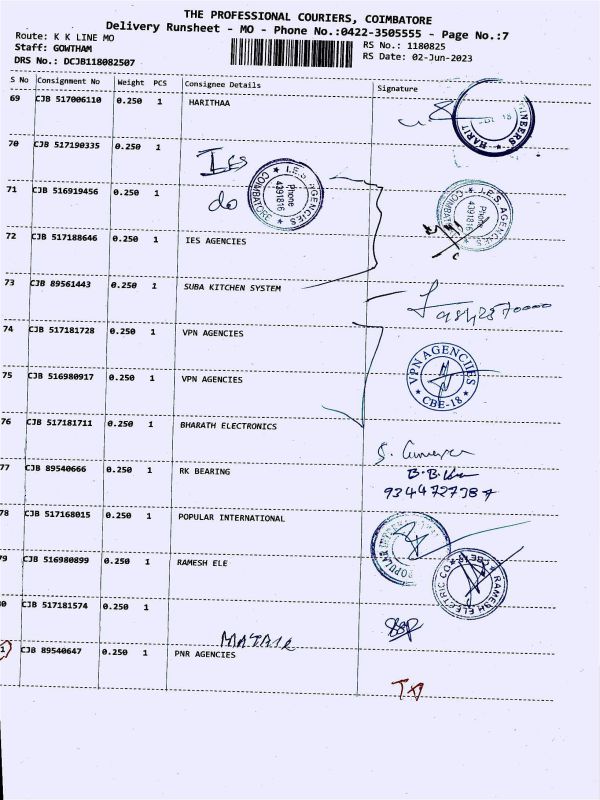 THE PROFESSIONAL COURIERS, COIMBATORE
Delivery Runsheet - MO - Phone No.:0422-3505555 - Page No.:7
Route: K K LINE MO
RS No.: 1180825
Staff: GOWTHAM
RS Date: 02-Jun-2023
DRS No.: DCJB118082507
S No Consignment No Weight PCS Consignee Details Signature
69 CJB 517006110 0.250 1 HARITHAA
70 CJB 517190335 0.250 1 IES
71 CJB 516919456 0.250 1 do
I.E.S. AGENCIES Phone 4391816 COIMBATORE
I.E.S. AGENCIES Phone 4391816
72 CJB 517188646 0.250 1 IES AGENCIES
73 CJB 89561443 0.250 1 SUBA KITCHEN SYSTEM
74 CJB 517181728 0.250 1 VPN AGENCIES
VPN AGENCIIES CBE-18
75 CJB 516980917 0.250 1 VPN AGENCIES
76 CJB 517181711 0.250 1 BHARATH ELECTRONICS
77 CJB 89540666 0.250 1 RK BEARING
78 CJB 517168015 0.250 1 POPULAR INTERNATIONAL
79 CJB 516980899 0.250 1 RAMESH ELE
RAMESH ELECTRIC CO
0 CJB 517181574 0.250 1
1 CJB 89540647 0.250 1 PNR AGENCIES